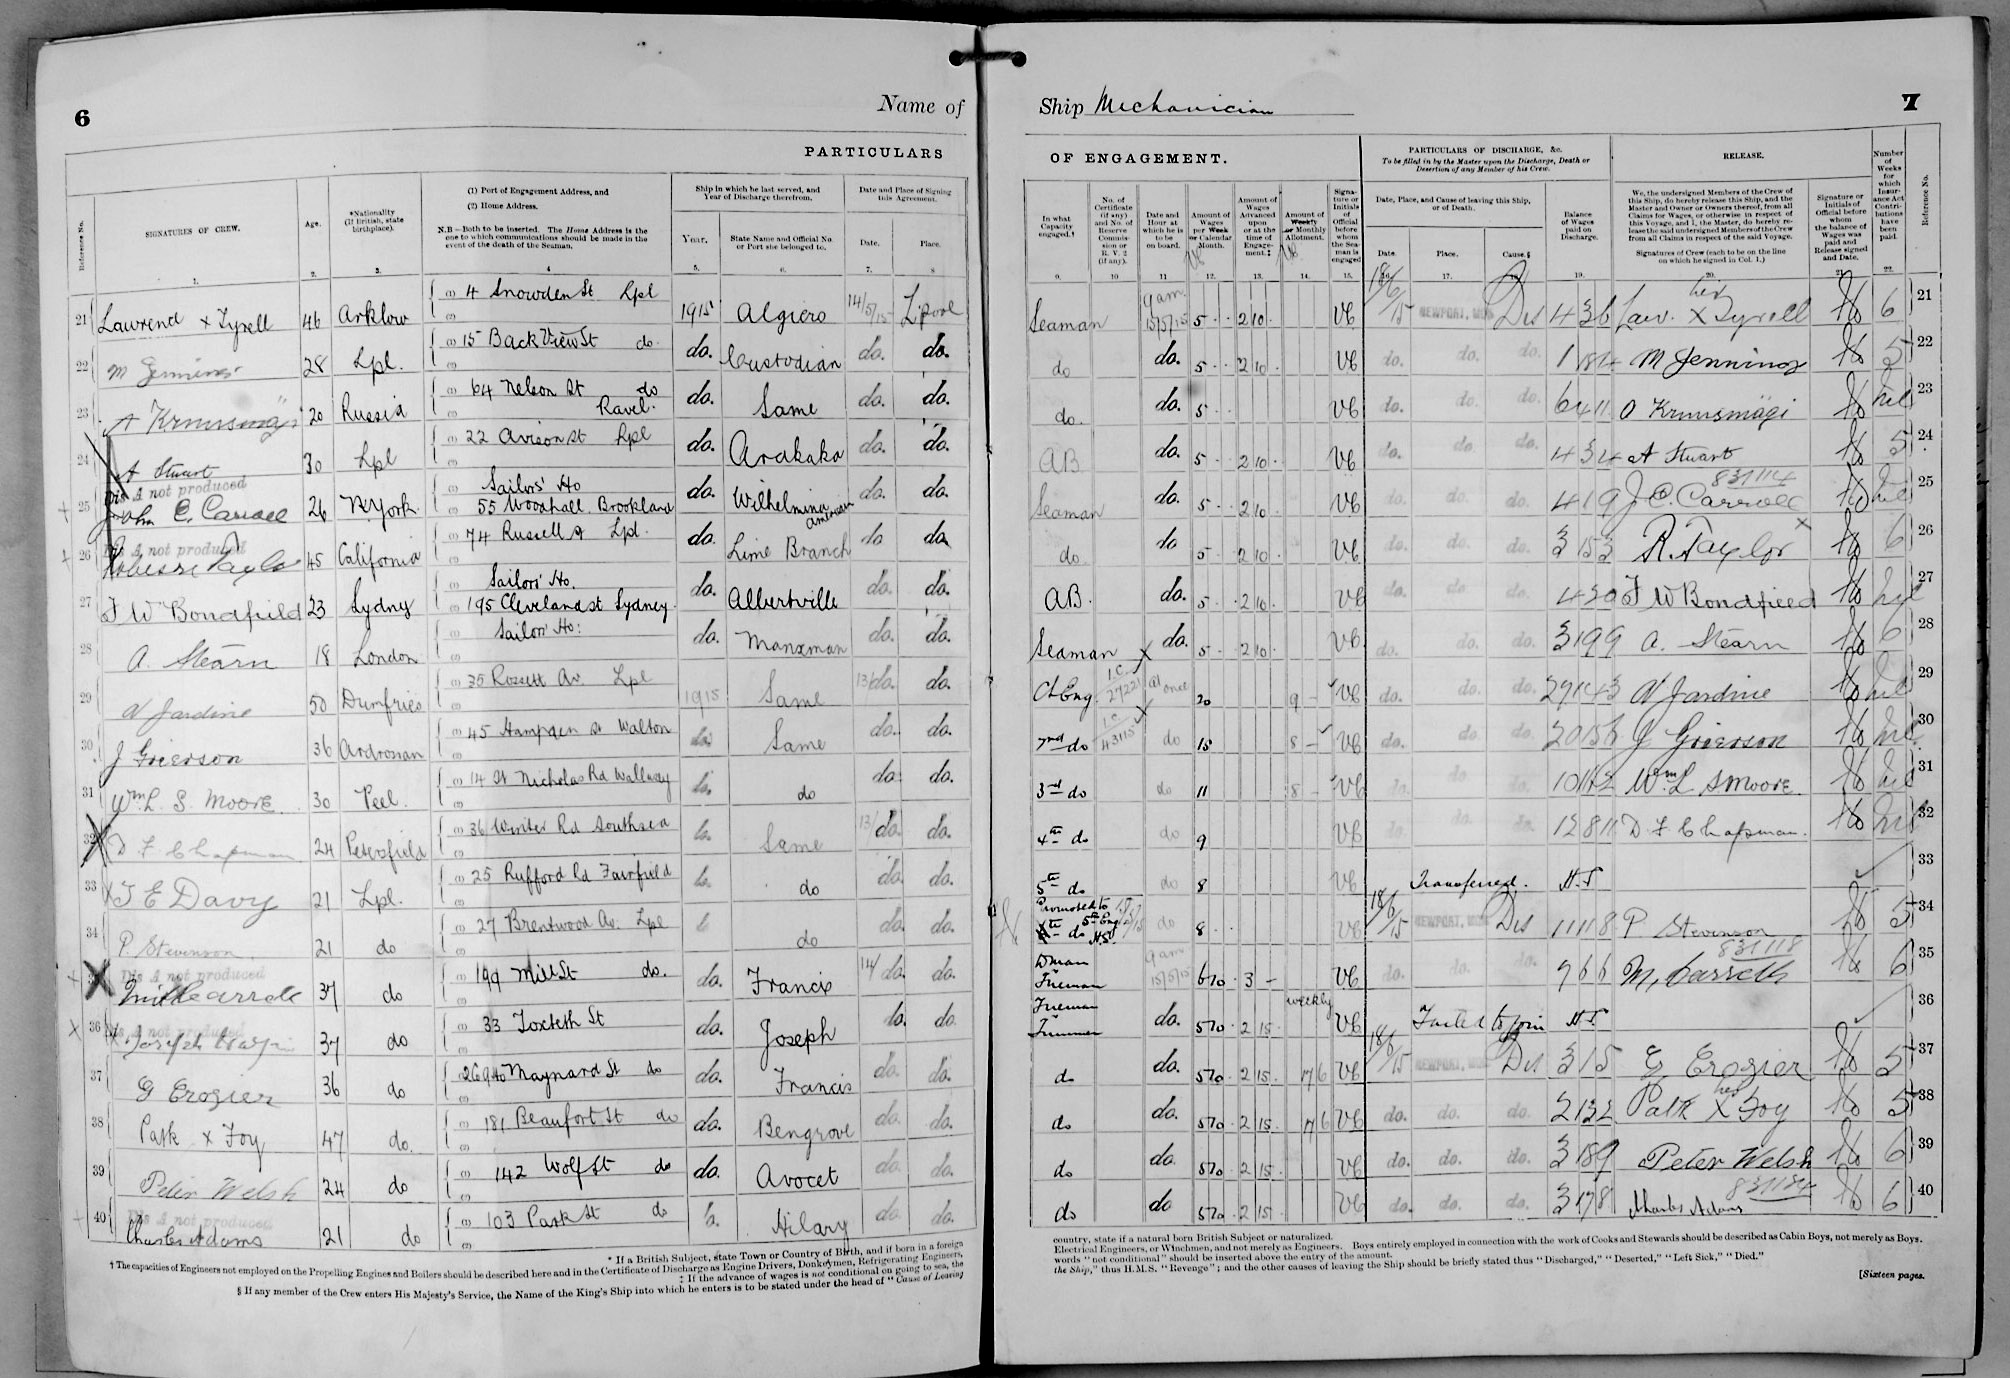 6
Name of
PARTICULARS
Reference No.
SIGNATURES OF CREW.
Age.
*Nationality (If British, state birthplace).
(1) Port of Engagement Address, and
(2) Home Address.
N.B—Both to be inserted. The Home Address is the one to which communications should be made in the event of the death of the Seaman.
Ship in which he last served, and Year of Discharge therefrom.
Year.
State Name and Official No. or Port she belonged to.
Date and Place of Signing this Agreement.
Date.
Place.
1. 2. 3. 4 5. 6. 7. 8
21 Lawrend x Tyrell 46 Arklow 4 Snowden St Lpl 1915 Algiers 14/5/15 L'pool
22 M Jennings 28 Lpl. 15 Back View St do. do. Custodian do. do.
23 Kruusmägi 20 Russia 64 Nelson St do Ravel. do. Same do. do.
24 A Stuart 30 Lpl 22 Avison St Lpl do. Arakaka do. do.
Dis A not produced
25 John C. Carroll 26 N. York Sailors' Ho 55 Woodhall. Brookland do. Wilhelmina American do. do.
Dis A not produced
26 Taylor 45 California 74 Russell St Lpl. do. Lime Branch do do.
27 F W Bondfield 23 Sydney Sailors' Ho. 195 Cleveland St Sydney. do. Albertville do. do.
28 A. Stearn 18 London Sailors' Ho: do. Manxman do. do.
29 W Jardine 50 Dumfries 35 Rossett Av. Lpl 1915 Same 13/do. do.
30 J Grierson 36 Ardrossan 45 Hampden St Walton do. Same do. do.
31 Wm L. S. Moore. 30 Peel. 14 St Nicholas Rd Wallasey do. do do. do.
32 D F Chapman 24 Petersfield 36 Winter Rd Southsea do. Same 13/do. do.
33 T E Davy 21 Lpl. 25 Rufford Rd Fairfield do. do do. do.
34 P. Stevenson. 21 do 27 Brentwood Av. Lpl do do. do.
Dis A not produced
Carroll 37 do 199 Mill St do. do. Francis 14/do. do.
Dis A not produced
36 Joseph 37 do 33 Toxteth St do. Joseph do. do.
37 G Crozier 36 do Maynard St do do. Francis do. do.
38 Patk x Foy 47 do. 181 Beaufort St do do. Bengrove do. do.
39 Peter Welsh 24 do 142 Wolf St do do. Avocet do. do.
Dis A not produced
40 Charles Adams 21 do 103 Park St do do. Hilary do. do.
* If a British Subject, state Town or Country of Birth, and if born in a foreign
† The capacities of Engineers not employed on the Propelling Engines and Boilers should be described here and in the Certificate of Discharge as Engine Drivers, Donkeymen, Refrigerating Engineers,
‡ If the advance of wages is not conditional on going to sea, the
§ If any member of the Crew enters His Majesty's Service, the Name of the King's Ship into which he enters is to be stated under the head of "Cause of Leaving
Ship Mechanician
7
OF ENGAGEMENT.
In what Capacity engaged.†
No. of Certificate (if any) and No. of Reserve Commission or R. V. 2 (if any).
Date and Hour at which he is to be on board.
Amount of Wages per Week or Calendar Month.
Amount of Wages Advanced upon or at the time of Engagement.‡
Amount of Weekly or Monthly Allotment.
Signature or Initials of Official before whom the Seaman is engaged
PARTICULARS OF DISCHARGE, &c.
To be filled in by the Master upon the Discharge, Death or Desertion of any Member of his Crew.
Date, Place, and Cause of leaving this Ship, or of Death.
Date. Place. Cause.§
Balance of Wages paid on Discharge.
RELEASE.
We, the undersigned Members of the Crew of this Ship, do hereby release this Ship, and the Master and Owner or Owners thereof, from all Claims for Wages, or otherwise in respect of this Voyage, and I, the Master, do hereby release the said undersigned Members of the Crew from all Claims in respect of the said Voyage.
Signatures of Crew (each to be on the line on which he signed in Col. 1.)
Signature or Initials of Official before whom the balance of Wages was paid and Release signed and Date.
Number of Weeks for which Insurance Act Contributions have been paid.
Reference No.
9. 10 11 12. 13. 14. 15. 17. 19. 20. 21. 22.
Seaman 9am 15/5/15 5 2 10 VC 18/6/15 NEWPORT, MON Dis 4 3 6 Law. his x Tyrell 6 21
do do. 5 2 10 VC do. do. do. 1 18 4 M Jennings 5 22
do. do. 5 VC do. do. do. 6 4 11 O Kruusmägi nil 23
AB do. 5 2 10 VC do. do. do. 4 3 4 A Stuart 5 24
831114
Seaman do. 5 2 10 VC do. do. do. 4 1 9 J C Carroll nil 25
do. do 5 2 10 VC do. do. do. 3 15 3 R. Taylor 6 26
AB. do. 5 2 10 VC do. do. do. F W Bondfield nil 27
Seaman do. 5 2 10 VC do. do. do. 3 19 9 A. Stearn 6 28
Ch Eng. at once 20 9 VC do. do. do. 29 14 3 W Jardine nil 29
2nd do 43115 do 15 8 VC do. do. do. 20 15 6 J Grierson nil 30
3rd do do 11 8 VC do. do. do. Wm L S Moore. nil 31
4th do do 9 VC do. do. do. 12 8 11 D F Chapman. nil 32
5th do do 8 VC Transferred. 33
Promoted to 5th Eng do 8 VC 18/6/15 NEWPORT, MON Dis 11 11 8 P Stevenson 5 34
831118
Dman Fireman 9am 15/5/15 6 10 3 VC do. do. do. 9 6 6 M, Carroll 6 35
Fireman Trimmer do. 5 10 2 15 weekly VC Failed to join 36
do do. 5 10 2 15 17 6 VC 18/6/15 NEWPORT, MON Dis 3 1 5 G Crozier 5 37
do do. 5 10 2 15 17 6 VC do. do. do. 2 13 2 Patk his x Foy 5 38
do do. 5 10 2 15 VC do. do. do. 3 18 9 Peter Welsh 6 39
831184
do do 5 10 2 15 VC do. do. do. 3 17 8 Charles Adams 6 40
country, state if a natural born British Subject or naturalized.
Electrical Engineers, or Winchmen, and not merely as Engineers. Boys entirely employed in connection with the work of Cooks and Stewards should be described as Cabin Boys, not merely as Boys.
words "not conditional" should be inserted above the entry of the amount.
the Ship," thus H.M.S. "Revenge"; and the other causes of leaving the Ship should be briefly stated thus "Discharged," "Deserted," "Left Sick," "Died."
[Sixteen pages.